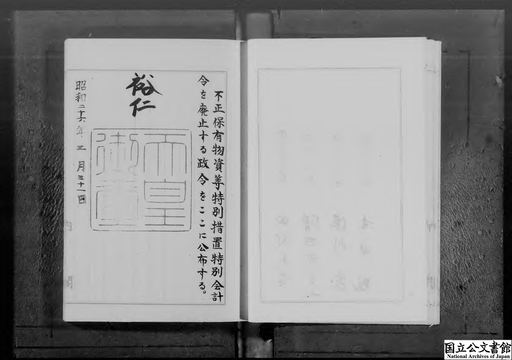 不正保有物資等特別措置特別会計
令を廃止する政令をここに公布する。
裕仁
天皇
御璽
昭和二十六年三月三十一日
国立公文書館
National Archives of Japan